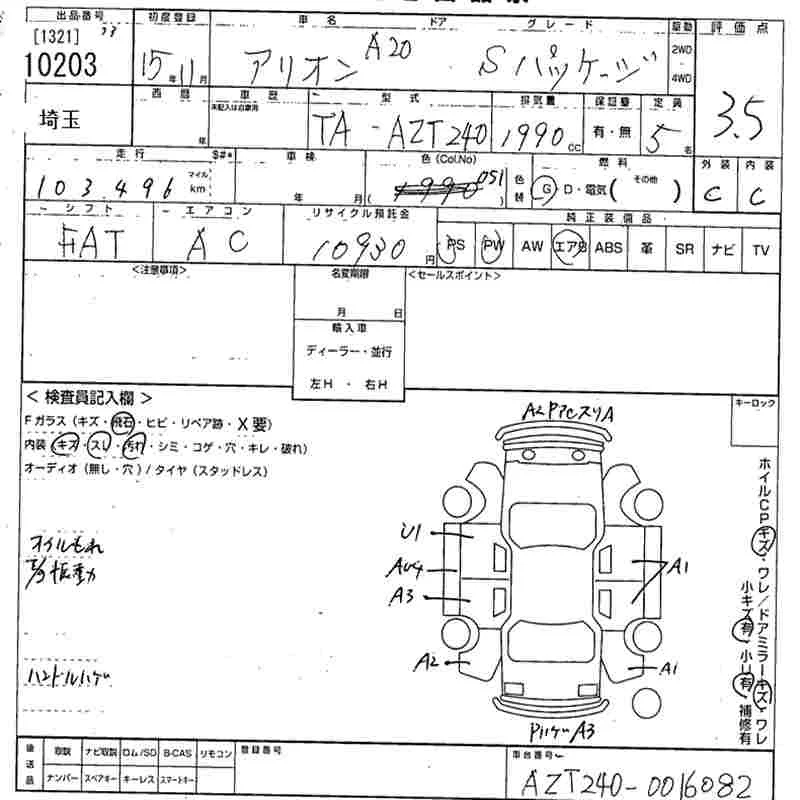 出品番号 初度登録 車名 ドア グレード 駆動 評価点
[1321]
10203
15年11月 アリオン A20 Sパッケージ 2WD・4WD 3.5
西暦 車歴 型式 排気量 保証書 定員
埼玉 年 TA-AZT240 1990cc 有・無 5名
走行 $#* 車検 色(Col.No) 色替 燃料 外装 内装
103,496 マイル km 年 月 ( 051 ) G・D・電気( その他 ) C C
シフト エアコン リサイクル預託金 純正装備品
FAT AC 10930円 PS PW AW エアB ABS 革 SR ナビ TV
<注意事項> 名変期限 <セールスポイント>
月 日
輸入車
ディーラー・並行
左H・右H
<検査員記入欄> キーロック
Fガラス(キズ・飛石・ヒビ・リペア跡・X要)
内装(キズ・スレ・汚れ・シミ・コゲ・穴・キレ・破れ)
オーディオ(無し・穴)/タイヤ(スタッドレス)
オイルもれ
振動
U1
AU4
A3
A2
A1
A1
A3
ホイルCPキズ・ワレ/ドアミラーキズ・ワレ
小キズ有・小U有・補修有
後送品 取説 ナビ取説 ロム/SD B-CAS リモコン 登録番号 車台番号
ナンバー スペアキー キーレス スマートキー AZT240-0016082